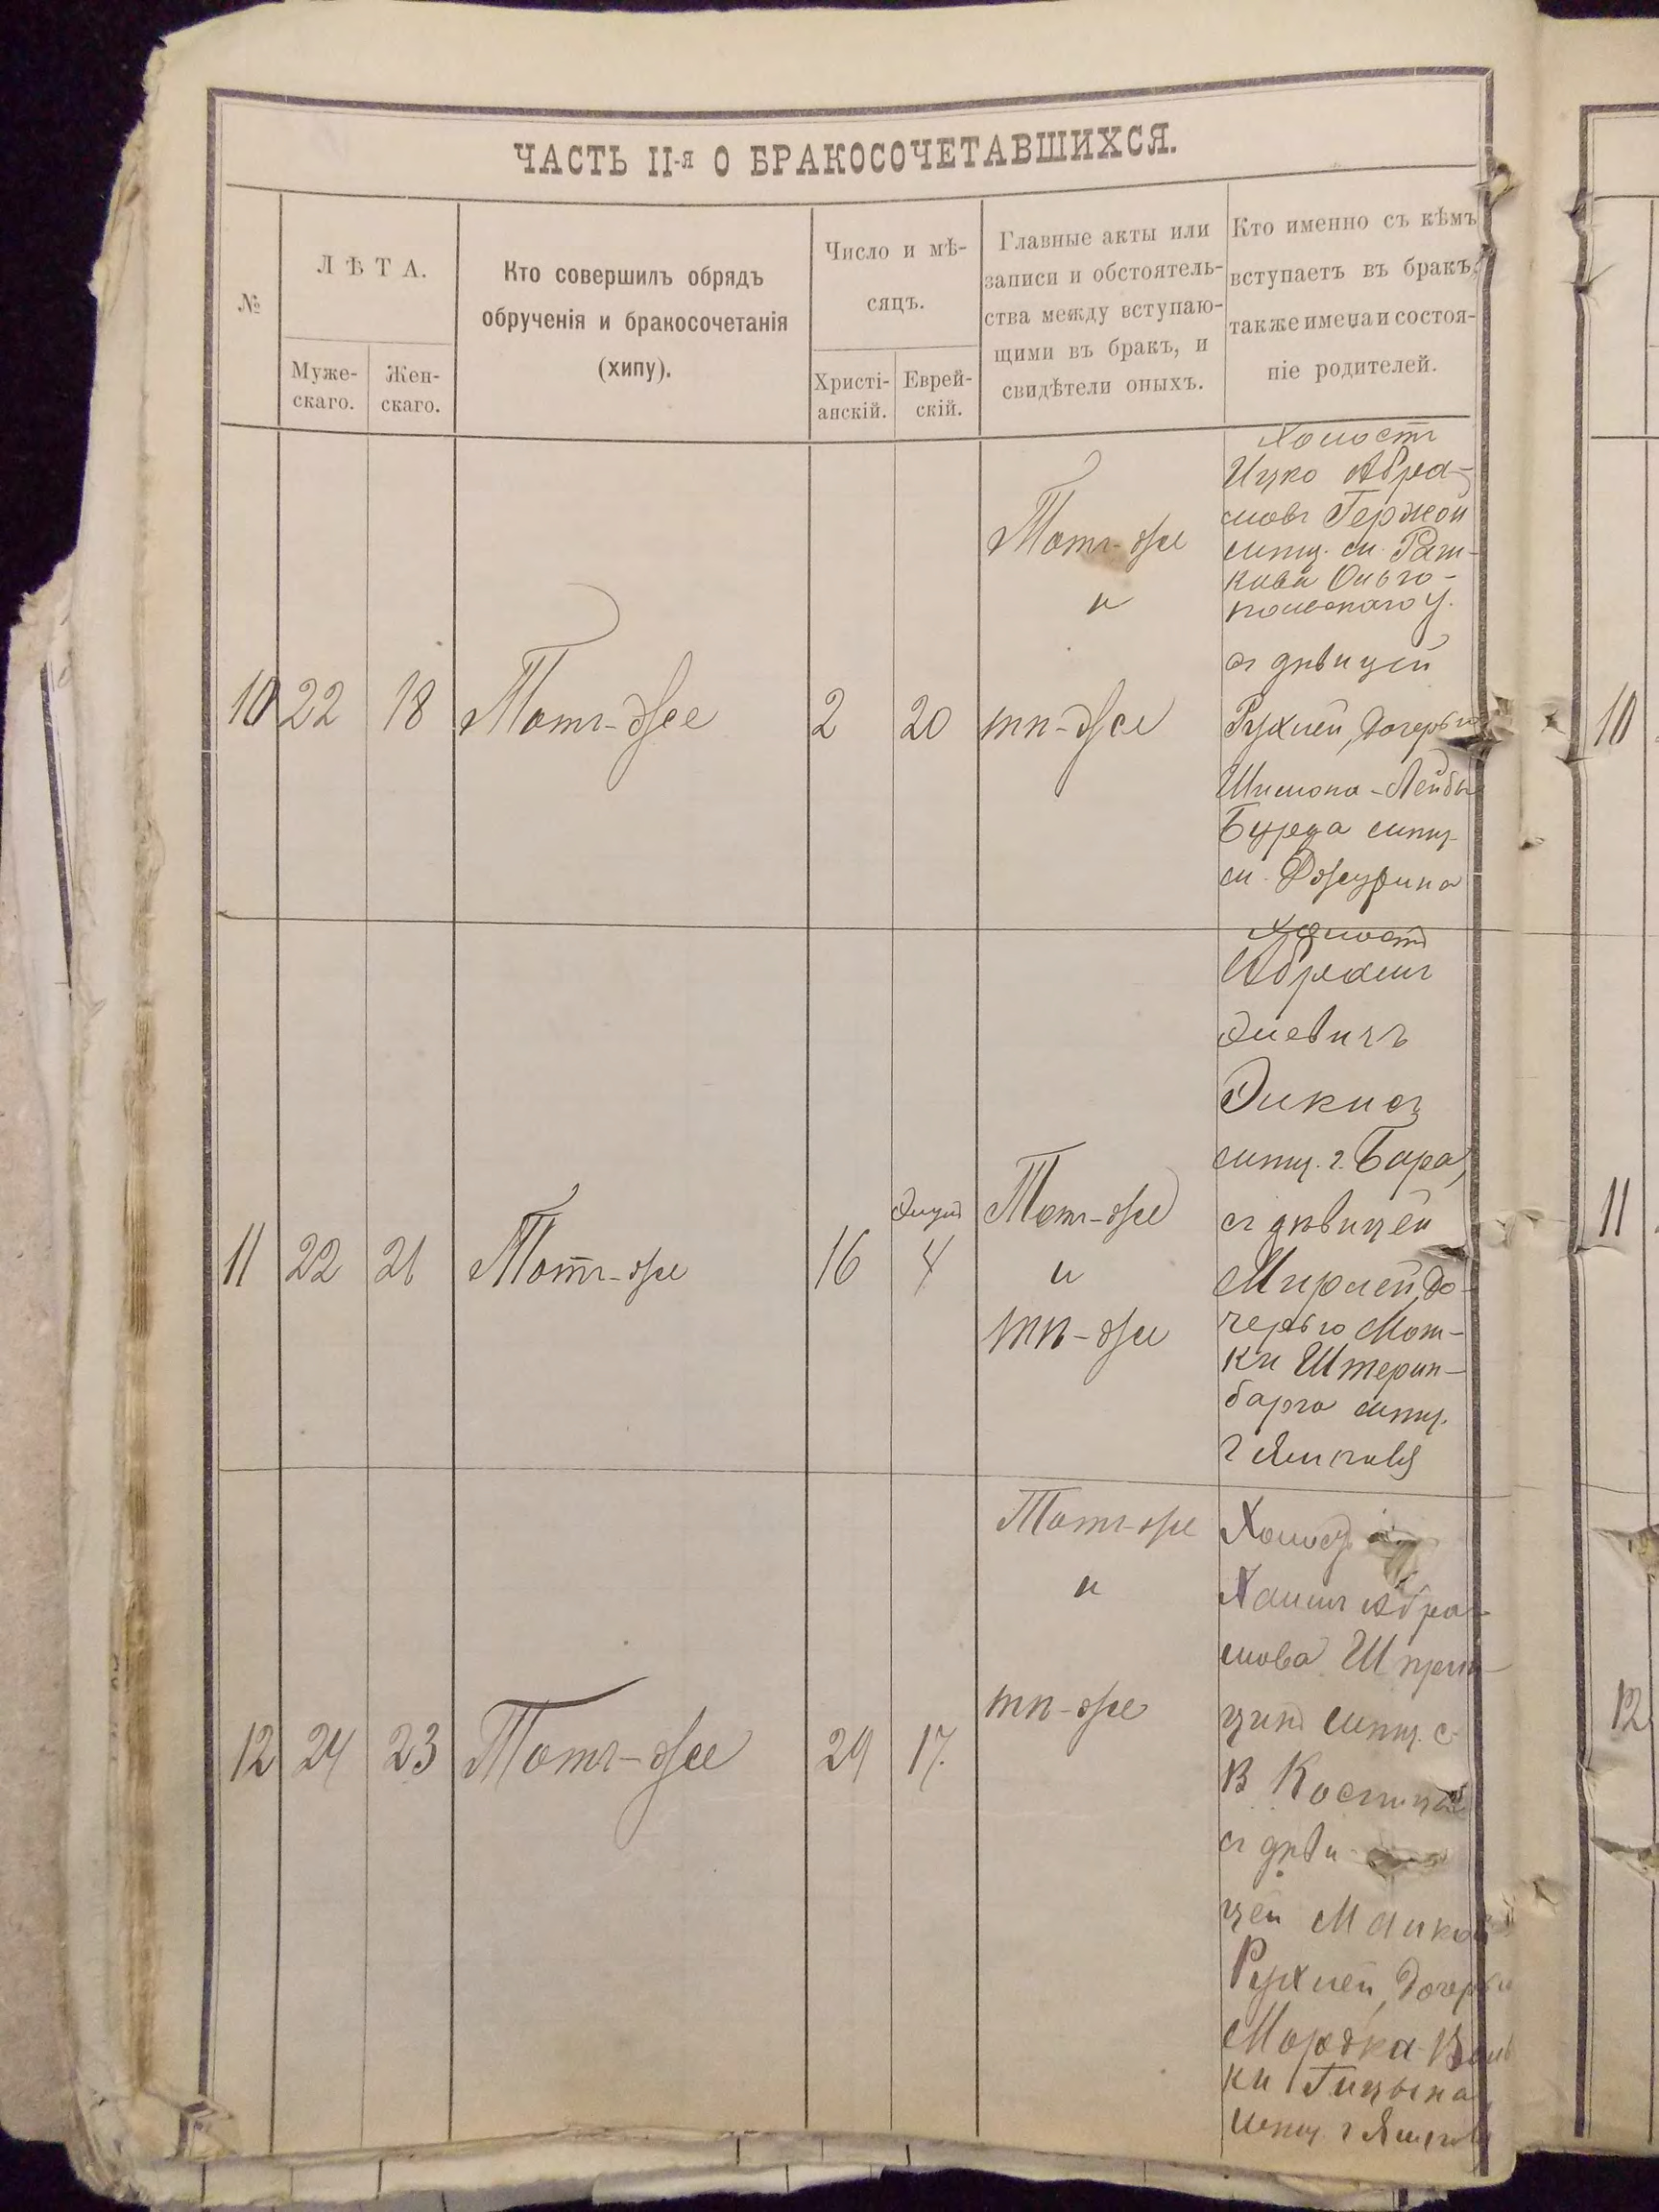 ЧАСТЬ II-я О БРАКОСОЧЕТАВШИХСЯ.
№
ЛѢТА.
Муже-
скаго.
Жен-
скаго.
Кто совершилъ обрядъ
обрученія и бракосочетанія
(хипу).
Число и мѣ-
сяцъ.
Христі-
анскій.
Еврей-
скій.
Главные акты или
записи и обстоятель-
ства между вступаю-
щими въ бракъ, и
свидѣтели оныхъ.
Кто именно съ кѣмъ
вступаетъ въ бракъ,
также имена и состоя-
ніе родителей.
10
22
18
Тотъ-же
2
20
Тотъ-же
и
тѣ-же
Холостъ
Ицко Абра-
мовъ Гержой
мѣщ. м. Раш-
кова Ольго-
польскаго у.
съ дѣвицей
Рухлей, дочерью
Шимона-Лейбы
Бурда мѣщ.
м. Джурина
11
22
21
Тотъ-же
16
4
Тотъ-же
и
тѣ-же
Холостъ
Абрамъ
Элевичъ
мѣщ. г. Бара,
съ дѣвицей
Мирлей, до-
черью Мош-
ки Штерин-
барга мѣщ.
г Ямполя
12
24
23
Тотъ-же
29
17.
Тотъ-же
и
тѣ-же
Холост
Хаимъ Абра-
мова
мѣщ. с.
В Косниц
съ дѣви
цей Малкой
Рухлей, дочерью
Мордка-Воль
ки
мѣщ. г Ямполя
10
11
12